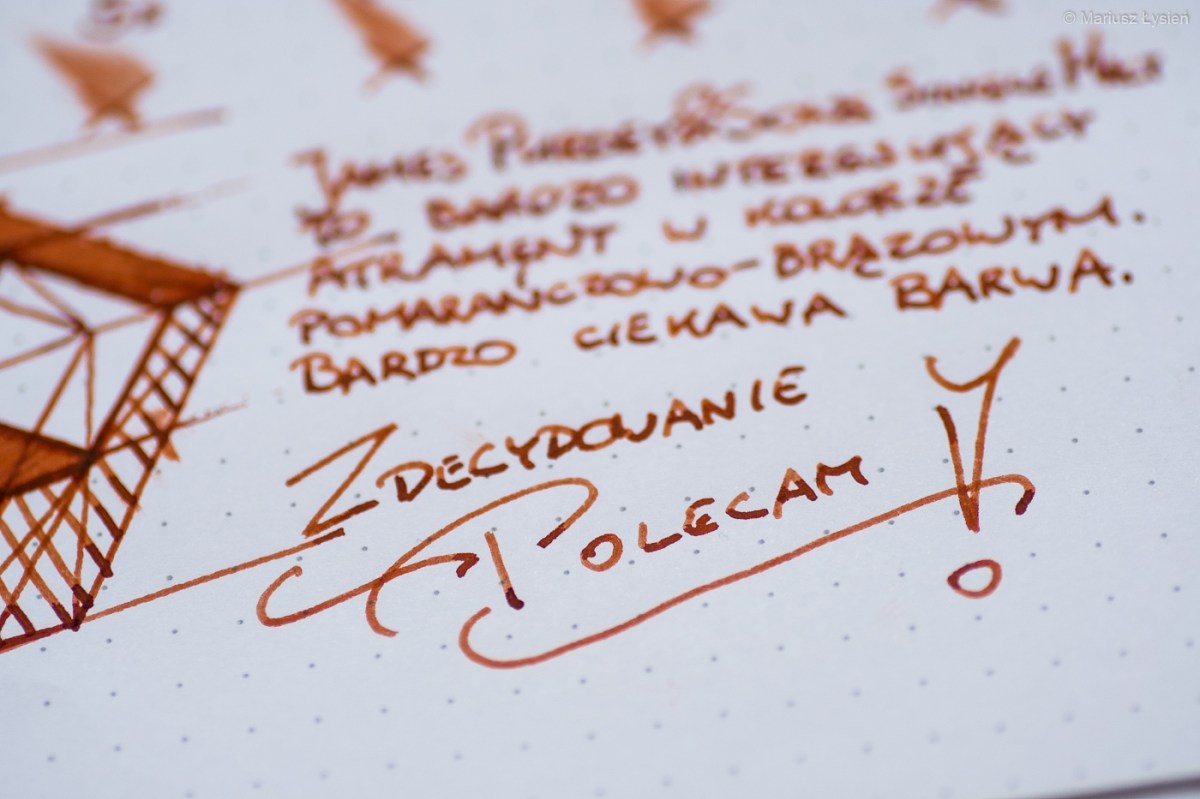 © Mariusz Łysień
5x
James Purdey & Sons Single Malt
to bardzo interesujący
atrament w kolorze
pomarańczowo-brązowym.
Bardzo ciekawa barwa.
Zdecydowanie
Polecam!